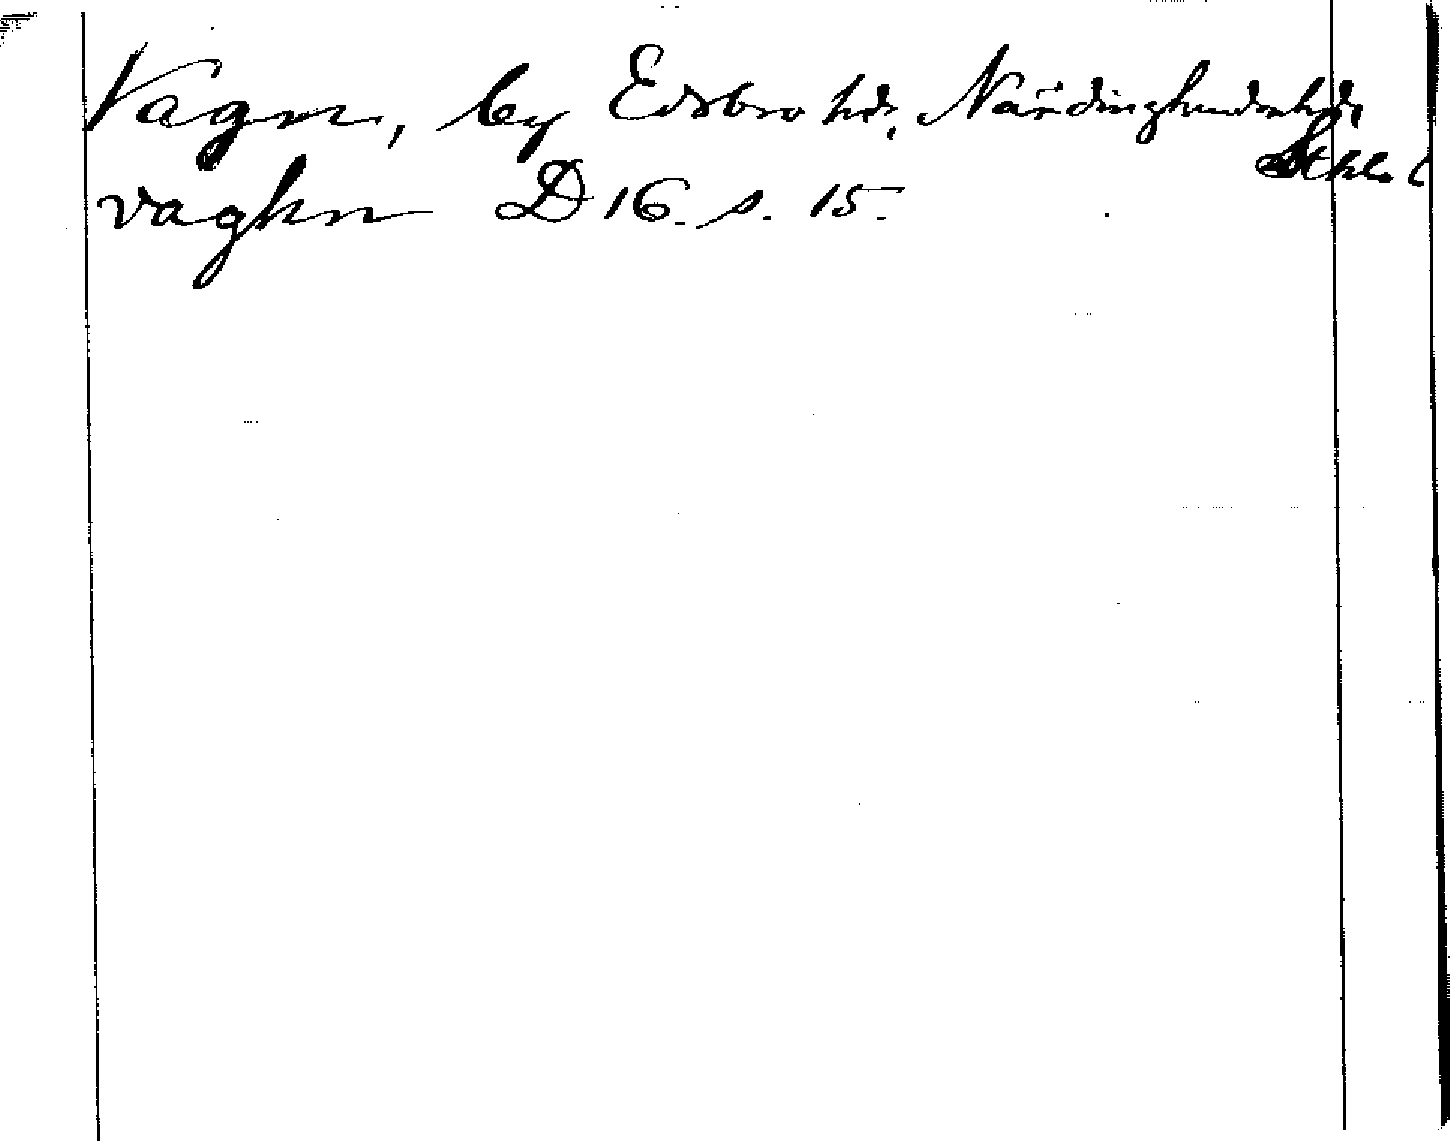 Vagn, by Edsbro hd, Närdinghundra hd,
Sthls l
vaghn D 16. s. 15.